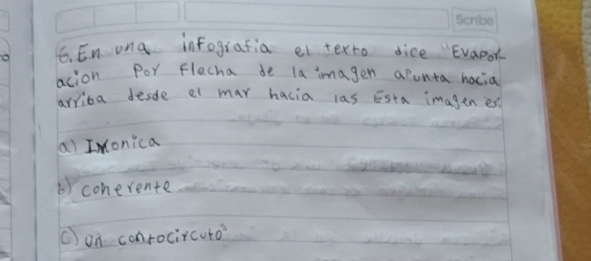 Scribe
6. En una infografia el texto dice "Evapor-
acion Por Flecha de la imagen aPunta hacia
arriba desde el mar hacia las Esta imagen es
a) Ixonica
b) coherente
c) un contocircuto